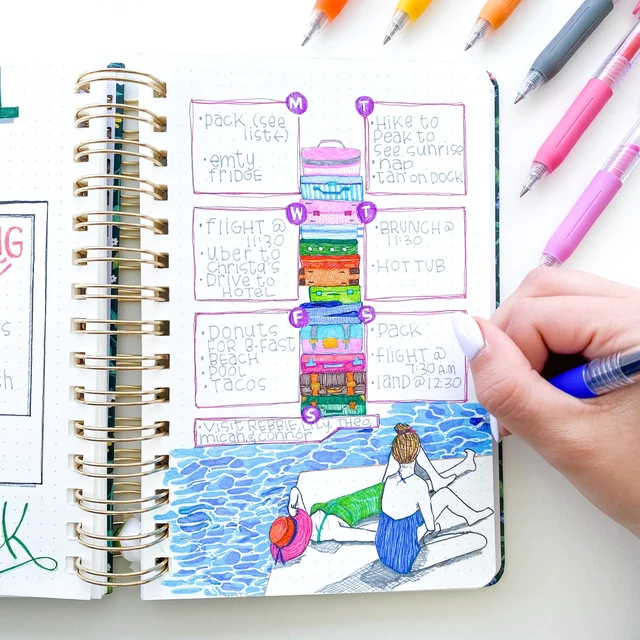 L
NG
s
sh.
K
M
• pack (see
list←)
• emty
fridge
T
• Hike to
peak to
see sunrise
• nap
• tan on DOCK
W
• flight @
11:30
• Uber to
Christa's
• Drive to
Hotel
T
• BRUNCH @
11:30
• HOT TUB
F
• Donuts
for B-fast
• BEACH
• POOL
• TACOS
S
• Pack
• flight @
7:30 AM
• land @ 12:30
S
• Visit Rebbie, Thea,
Micah & Connor